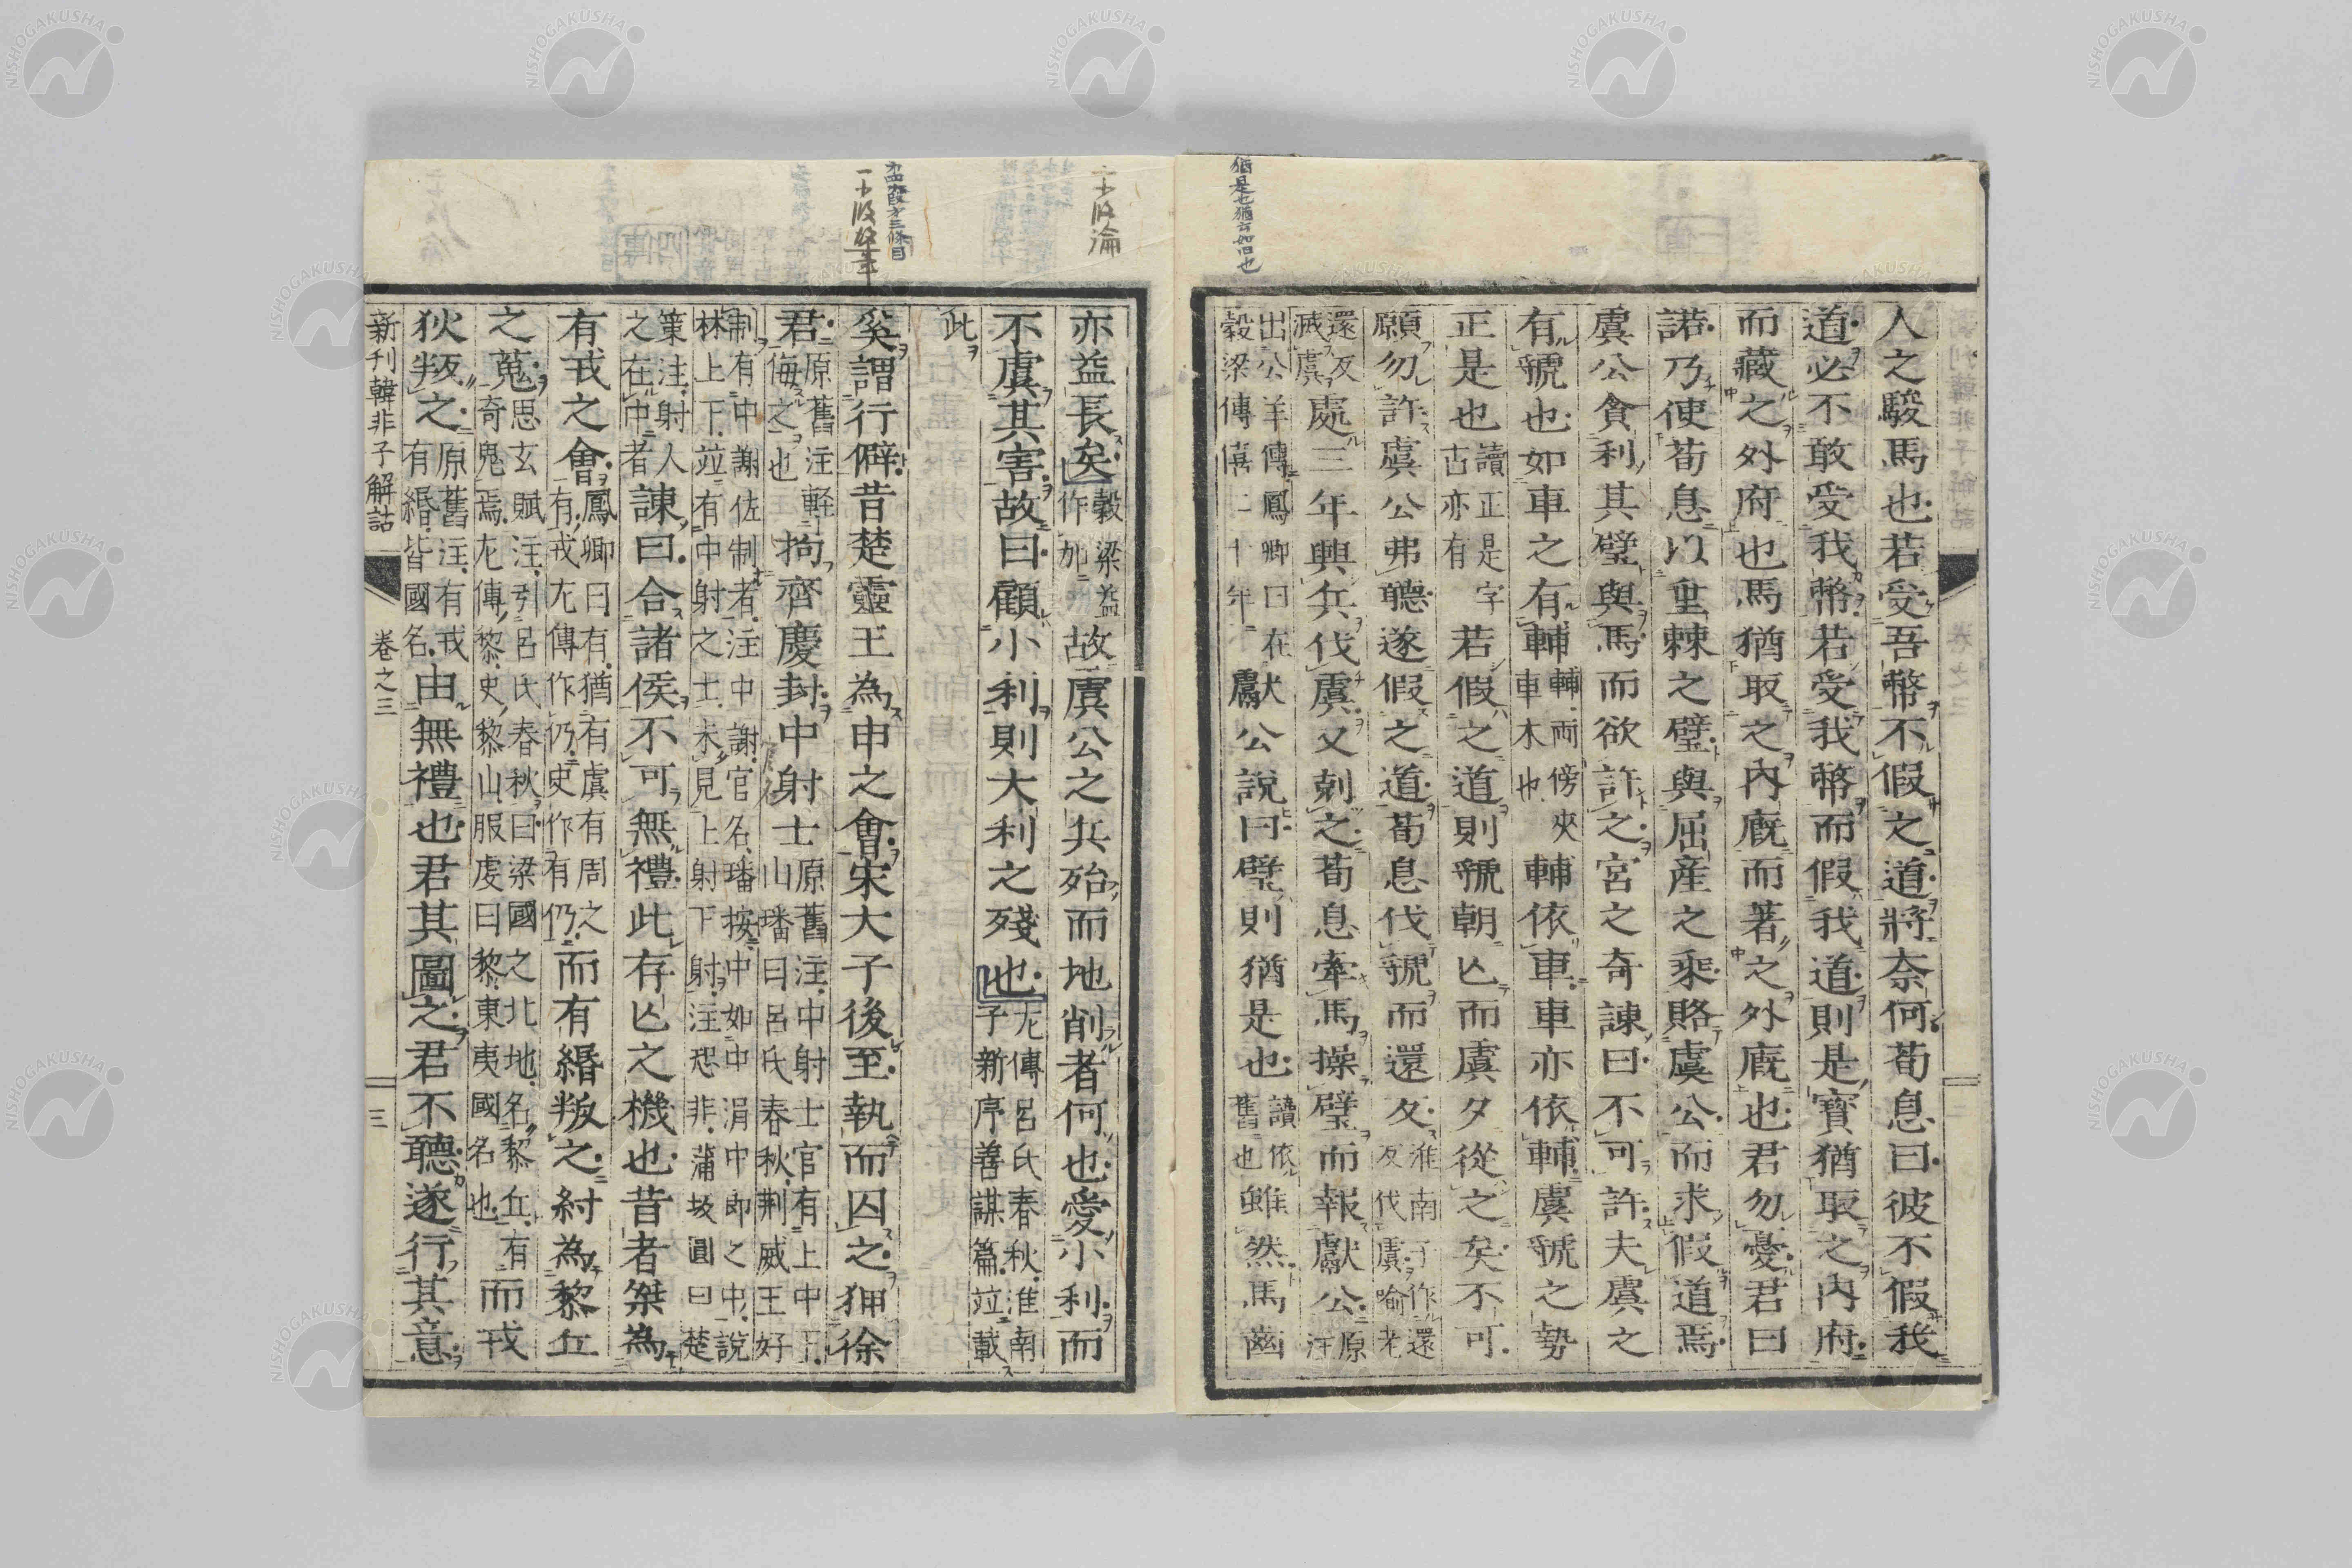 人之駿馬也若受吾幣不假之道將奈何荀息曰彼不假我
道必不敢受我幣若受我幣而假我道則是寶猶取之內府
而藏之外府也馬猶取之內廐而著之外廐也君勿憂君曰
諾乃使荀息以垂棘之璧與屈產之乘賂虞公而求假道焉
虞公貪利其璧與馬而欲許之宮之奇諫曰不可許夫虞之
有虢也如車之有輔輔兩傍夾車木也輔依車車亦依輔虞虢之勢
正是也讀正是字古亦有若假之道則虢朝亾而虞夕從之矣不可
願勿許虞公弗聽遂假之道荀息伐虢而還反淮南子作還反伐虞喻老
還反滅虞處三年興兵伐虞又剋之荀息牽馬操璧而報獻公原注
出公羊傳鳳卿曰在穀梁傳僖二十年獻公說曰璧則猶是也讀依舊也雖然馬齒
猶是也猶言如旧也
亦益長矣穀梁益作加故虞公之兵殆而地削者何也愛小利而
不虞其害故曰顧小利則大利之殘也左傳呂氏春秋淮南子新序善謀篇竝載
此
奚謂行僻昔楚靈王為申之會宋大子後至執而囚之狎徐
君原舊注輕侮之也拘齊慶封中射士原舊注中射士官有上中下山璠曰呂氏春秋荆威王好
制有中謝佐制者注中謝官名璠按中如中涓中即之中說林上下竝有中射之士未見上射下射注恐非蒲坂圓曰楚
策注射人之在中者諫曰合諸侯不可無禮此存亾之機也昔者桀為
有戎之會鳳卿曰有猶有虞有周之有戎左傳作仍史作有仍而有緡叛之紂為黎丘
之蒐思玄賦注引呂氏春秋曰梁國之北地名黎丘有奇鬼焉左傳黎史黎山服虔曰黎東夷國名也而戎
狄叛之原舊注有戎有緡皆國名由無禮也君其圖之君不聽遂行其意
新刊韓非子解詁 卷之三 三